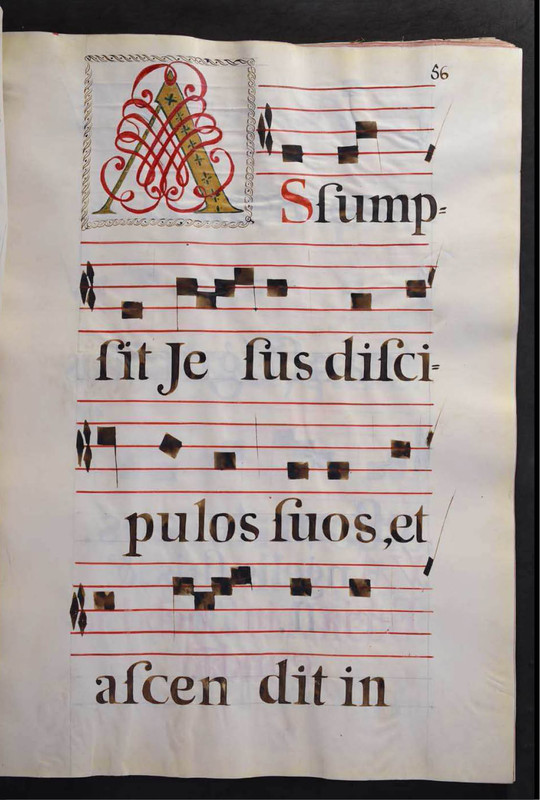 56
ASſump=
ſit Je ſus diſci=
pulos ſuos, et
aſcen dit in